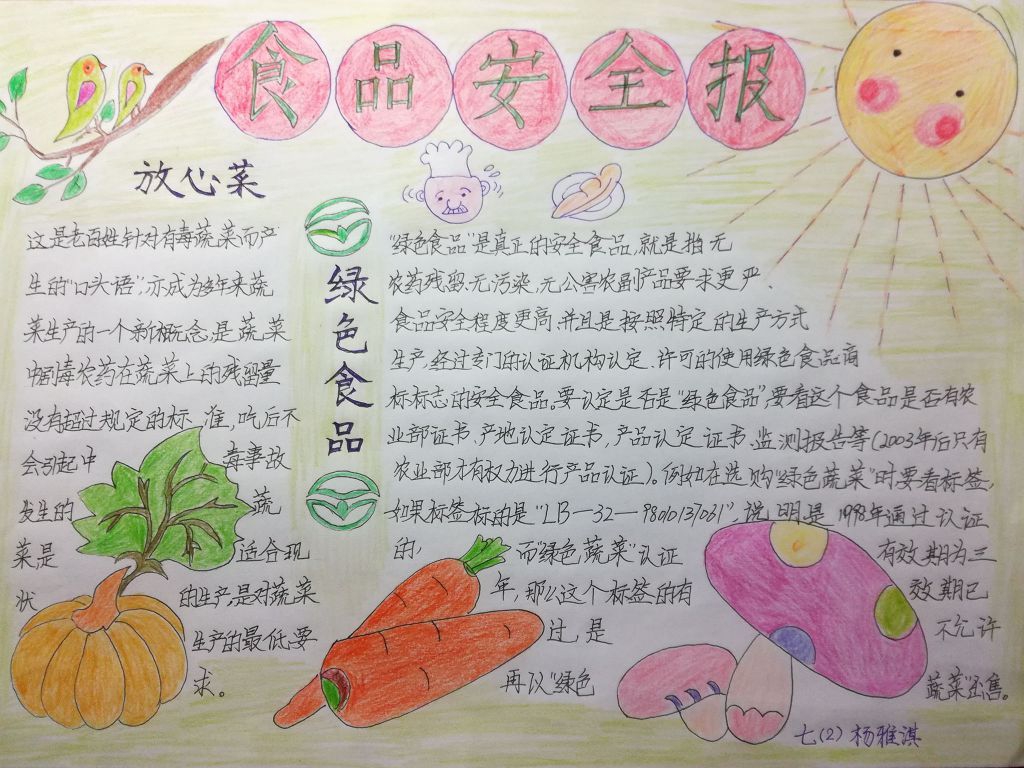 食品安全报
放心菜
这是老百姓针对有毒蔬菜而产
生的“口头语”,亦成为多年来蔬
菜生产的一个新概念,是蔬菜
中剧毒农药在蔬菜上的残留量
没有超过规定的标准,吃后不
会引起中毒事故
发生的蔬
菜是适合现
状的生产,是对蔬菜
生产的最低要
求。
绿色食品
“绿色食品”是真正的安全食品,就是指无
农药残留、无污染、无公害农副产品要求更严、
食品安全程度更高,并且是按照特定的生产方式
生产,经过专门的认证机构认定、许可的使用绿色食品商
标标志的安全食品。要认定是否是“绿色食品”,要看这个食品是否有农
业部证书、产地认定证书,产品认定证书、监测报告等(2003年后只有
农业部才有权力进行产品认证)。例如在选购“绿色蔬菜”时要看标签,
如果标签标的是“LB—32—9801013701”,说明是1998年通过认证
的,而“绿色蔬菜”认证有效期为三
年,那么这个标签的有效期已
过,是不允许
再以“绿色蔬菜”还售。
七(2)杨雅淇